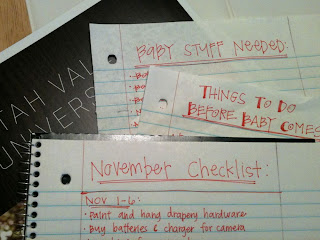 TAH VAL
UNIVERS
BABY STUFF NEEDED:
THINGS TO DO
BEFORE BABY COMES
NOVEMBER CHECKLIST:
NOV 1-6:
• PAINT AND HANG DRAPERY HARDWARE
• BUY BATTERIES & CHARGER FOR CAMERA